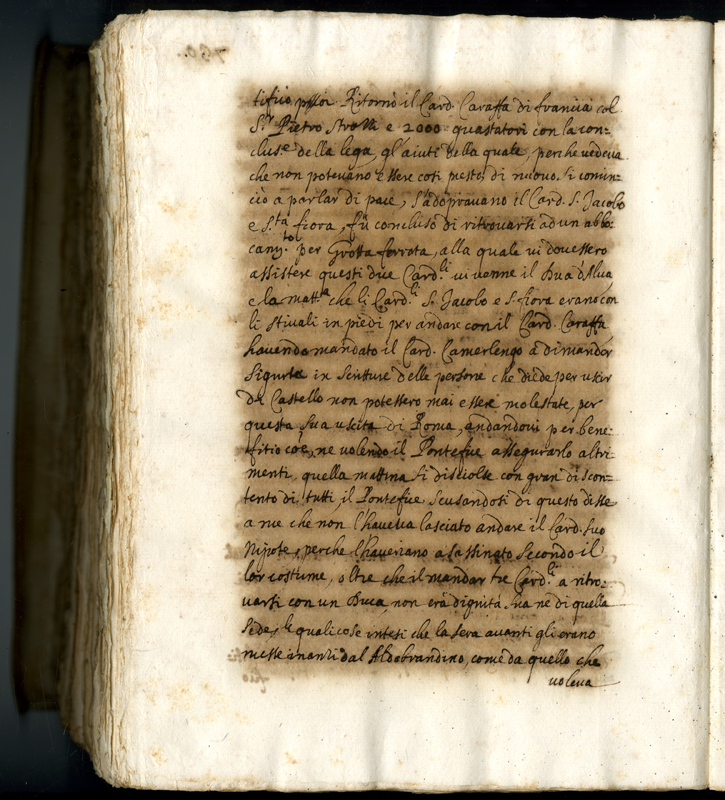 tifício Ritornò il Card. Caraffa di francia col
S.r Pietro Strozzi e 2000 guastatori con la con-
clus.e della lega, gl'aiuti della quale, perche vedeva
che non potevano essere così presti, di nuovo si comin-
ciò a parlar di pace, s'adopravano il Card. S. Jacobo
e S.ta fiora, fù concluso di ritrovarsi ad un abbo-
cam.to per Grotta ferrata, alla quale vi dovessero
assistere questi due Card.li vi venne il Duca d'Alva
e la matt.a che li Card.li S. Jacolo e S. fiora erano con
li stivali in piedi per andare con il Card. Caraffa
havendo mandato il Card. Camerlengo a dimandar
sigurtà in scritture delle persone che diede per uscir
di Castello non potessero mai essere molestate, per
questa sua uscita di Roma, andandovi per bene-
fitio co'e, ne volendo il Pontefice assegurarlo altri-
menti, quella mattina si disciolse con gran discon-
tento di tutti, il Pontefice scusandosi di questo disse
a me che non l'haveva lasciato andare il Card. suo
Nipote, perche l'haveriano asassinato secondo il
lor costume, oltre che il mandar tre Card.li a ritro-
varsi con un Duca, non era dignità sua ne di quella
Sede, le quali cose intesi che la sera avanti gli erano
messe inanzi dal Aldobrandino, come da quello che
voleva